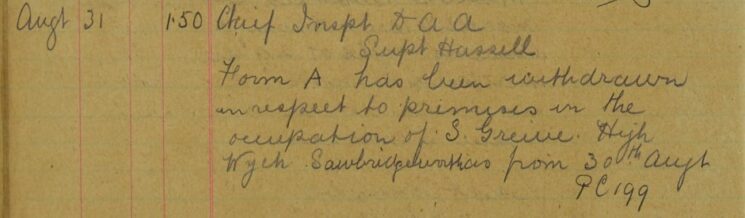 Augt 31 1.50 Chief Inspt D A A
Supt Hassell
Form A has been withdrawn
in respect to premises in the
occupation of S. Greive. High
Wych Sawbridgeworth as from 30th Augt
PC 199